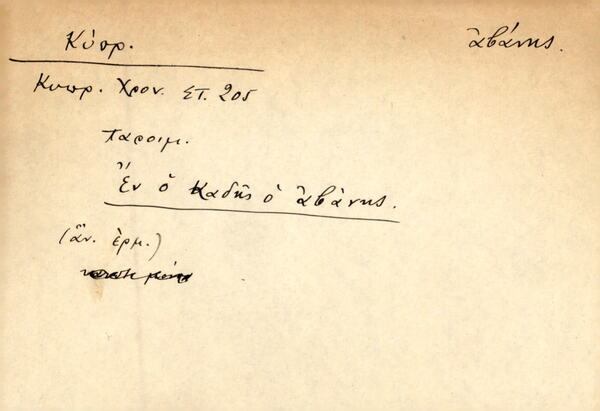 Κύπρ.
ἀβάνης.
Κυπρ. Χρον. ΣΤ. 205
παροιμ.
Ἓν ὁ Καδῆς ὁ ἀβάνης.
(ἄν. ἑρμ.)